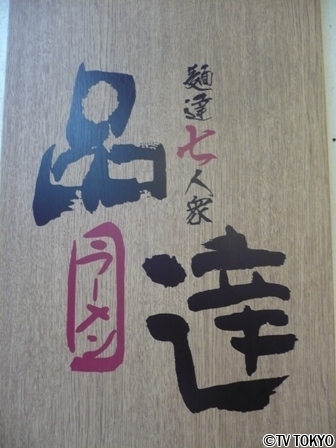 麺達七人衆
品達
ラーメン
©TV TOKYO